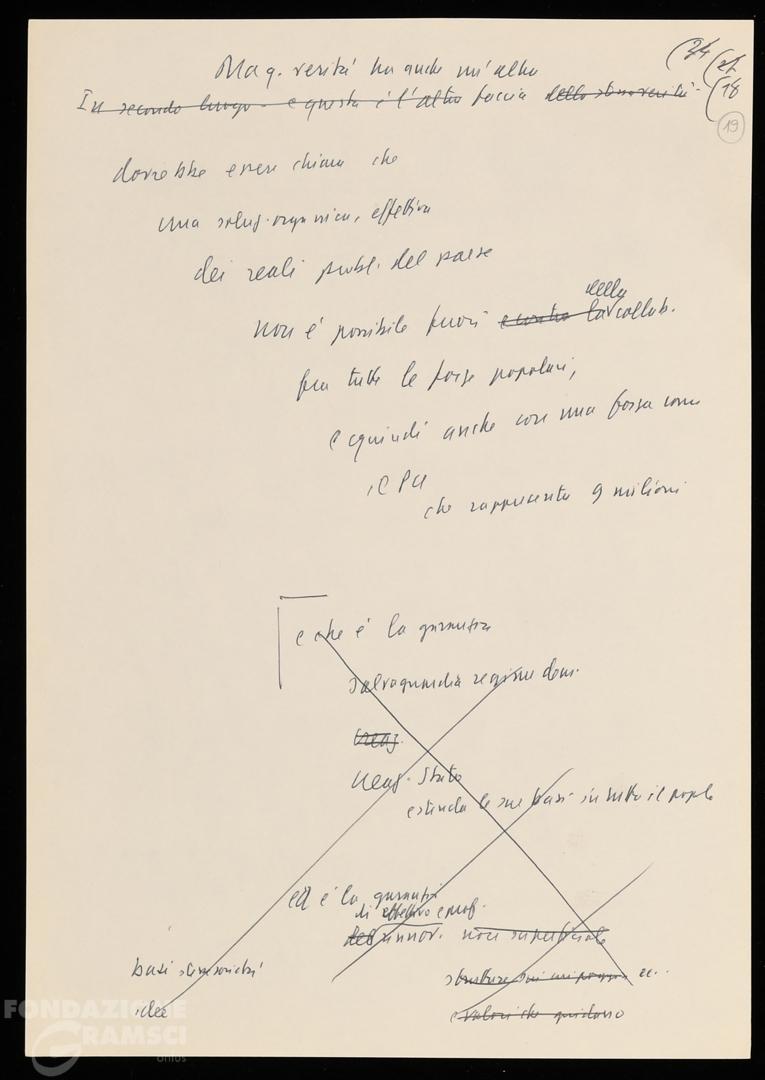 Ma q. verità ha anche un'altra
In secondo luogo - e questa è l'altra faccia della stessa verità -
(24 (21
(18
19
dovrebbe essere chiaro che
una soluz. organica, effettiva
dei reali probl. del paese
della
non è possibile fuori e contro la collab.
fra tutte le forze popolari,
e quindi anche con una forza come
il PCI
che rappresenta 9 milioni
e che è la garanzia
salvaguardia regime dem.
Reaz. Stato
estenda le sue basi in tutto il popolo
ed è la garanzia
di effettivo e prof.
del rinnov. non superficiale
basi
strutture su cui poggia ec..
idee
e valori che guidano
FONDAZIONE
GRAMSCI
onlus